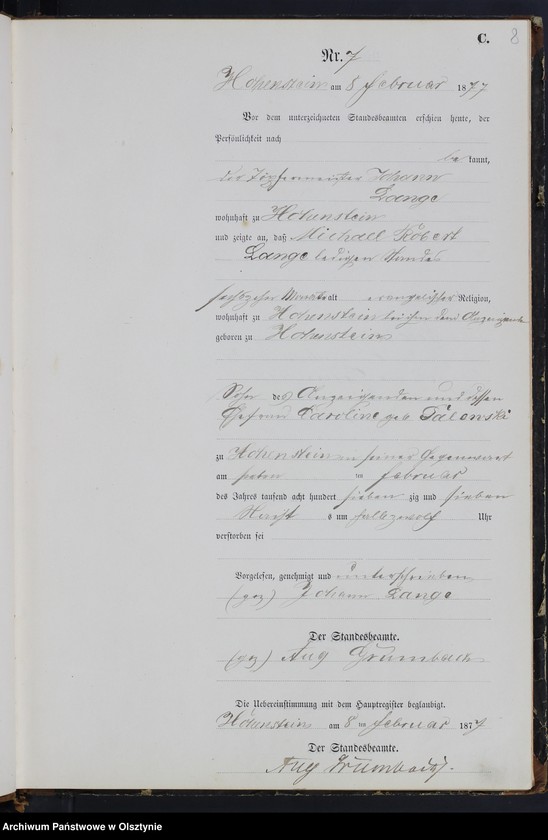 C. 8
Nr. 7
Hohenstein am 8 Februar 1877
Vor dem unterzeichneten Standesbeamten erschien heute, der
Persönlichkeit nach
be kannt,
der Töpfermeister Johann
Lange
wohnhaft zu Hohenstein
und zeigte an, daß Michael Robert
Lange ledigen Standes
sechszehn Monate alt evangelischer Religion,
wohnhaft zu Hohenstein bei ihm dem Anzeigende
geboren zu Hohenstein
Sohn des Anzeigenden und dessen
Ehefrau Caroline geb.
zu Hohenstein in seiner Gegenwart
am sieben ten Februar
des Jahres tausend acht hundert sieben zig und sieben
Nachts um halbzwölf Uhr
verstorben sei
Vorgelesen, genehmigt und unterschrieben
(gez) Johann Lange
Der Standesbeamte.
(gez) Aug Grumbach
Die Uebereinstimmung mit dem Hauptregister beglaubigt.
Hohenstein am 8 ten Februar 1877
Der Standesbeamte.
Aug Grumbach.
Archiwum Państwowe w Olsztynie